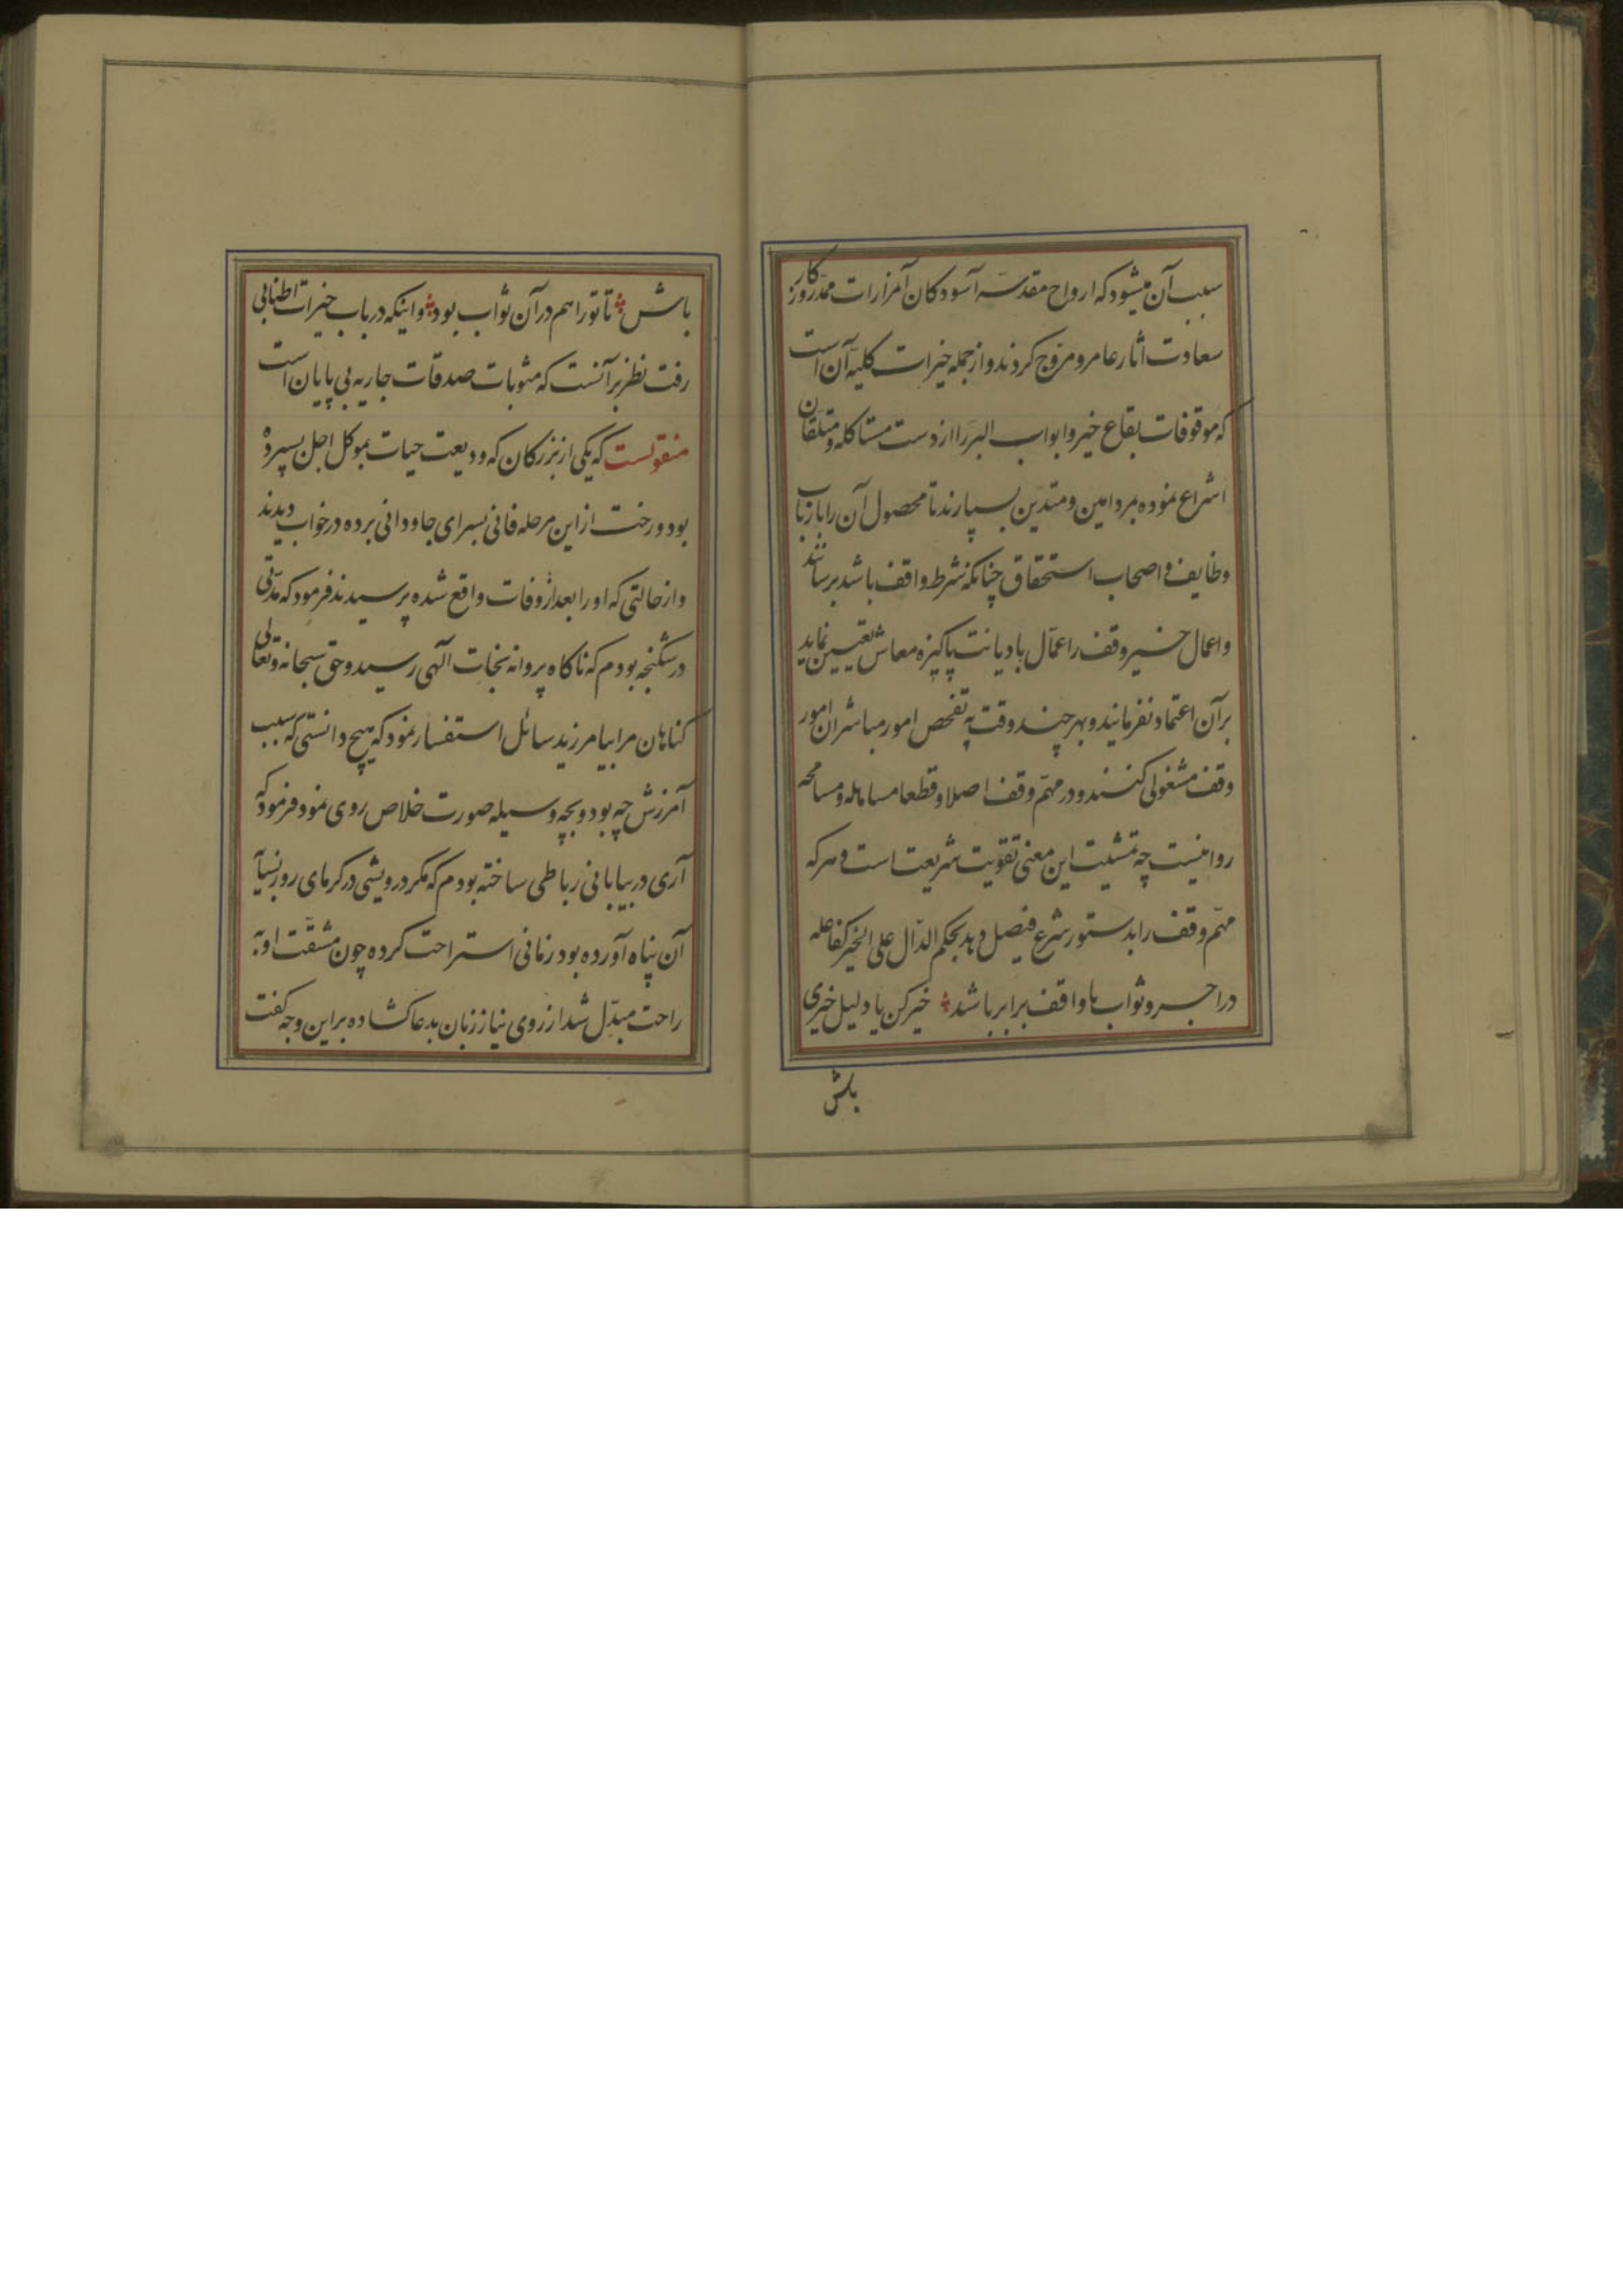 سبب آن میشود که ارواح مقدسه آسودکان آمزارات ممدّ روزکار
سعادت اثار عامر و مروّج کردند و از جمله خیرات کلیه آن است
که موقوفات بقاع خیر و ابواب البر را از دست مستاکله و متلقان
اشراع نموده بمردامین و متدین بسپارند تا محصول آن را بارباب
وظایف و اصحاب استحقاق چنانکه شرط واقف باشد برسانند
و اعمال خیر وقف را عمّال با دیانت پاکیزه معاش تعیین نماید
بر آن اعتماد نفرمانید و بهر چند وقت به تفحص امور مباشران امور
وقف مشغولی کنند و در مهمّ وقف اصلا و قطعا مساهله و مسامحه
روا نیست چه تمشیت این معنی تقویت شریعت است و هر که
مهمّ وقف را بدستور شرع فیصل دهد بحکم الدّال علی الخیر کفاعله
در اجر و ثواب با واقف برابر باشد خیر کن یا دلیل خیری
باش
باش تا تو را هم در آن ثواب بود و اینکه در باب خیرات اطنابی
رفت نظر بر آنست که مثوبات صدقات جاریه بی پایان است
منقولست که یکی از بزرکان که ودیعت حیات بموکل اجل سپرده
بود و رخت از این مرحله فانی بسرای جاودانی برده در خواب دیدند
و از حالتی که او را بعد از وفات واقع شده پرسیدند فرمود که مدّتی
در شکنجه بودم که ناکاه پروانه نجات آلهی رسید و حق سبحانه و تعالی
کناهان مرا بیامرزید سائل استفسار نمود که هیچ دانستی که سبب
آمرزش چه بود و بچه وسیله صورت خلاص روی نمود فرمود که
آری در بیابانی رباطی ساخته بودم که مکر درویشی در کرمای روز بسیا
آن پناه آورده بود زمانی استراحت کرده چون مشقّت او به
راحت مبدّل شد از روی نیاز زبان بدعا کشاده بر این وجه کفت